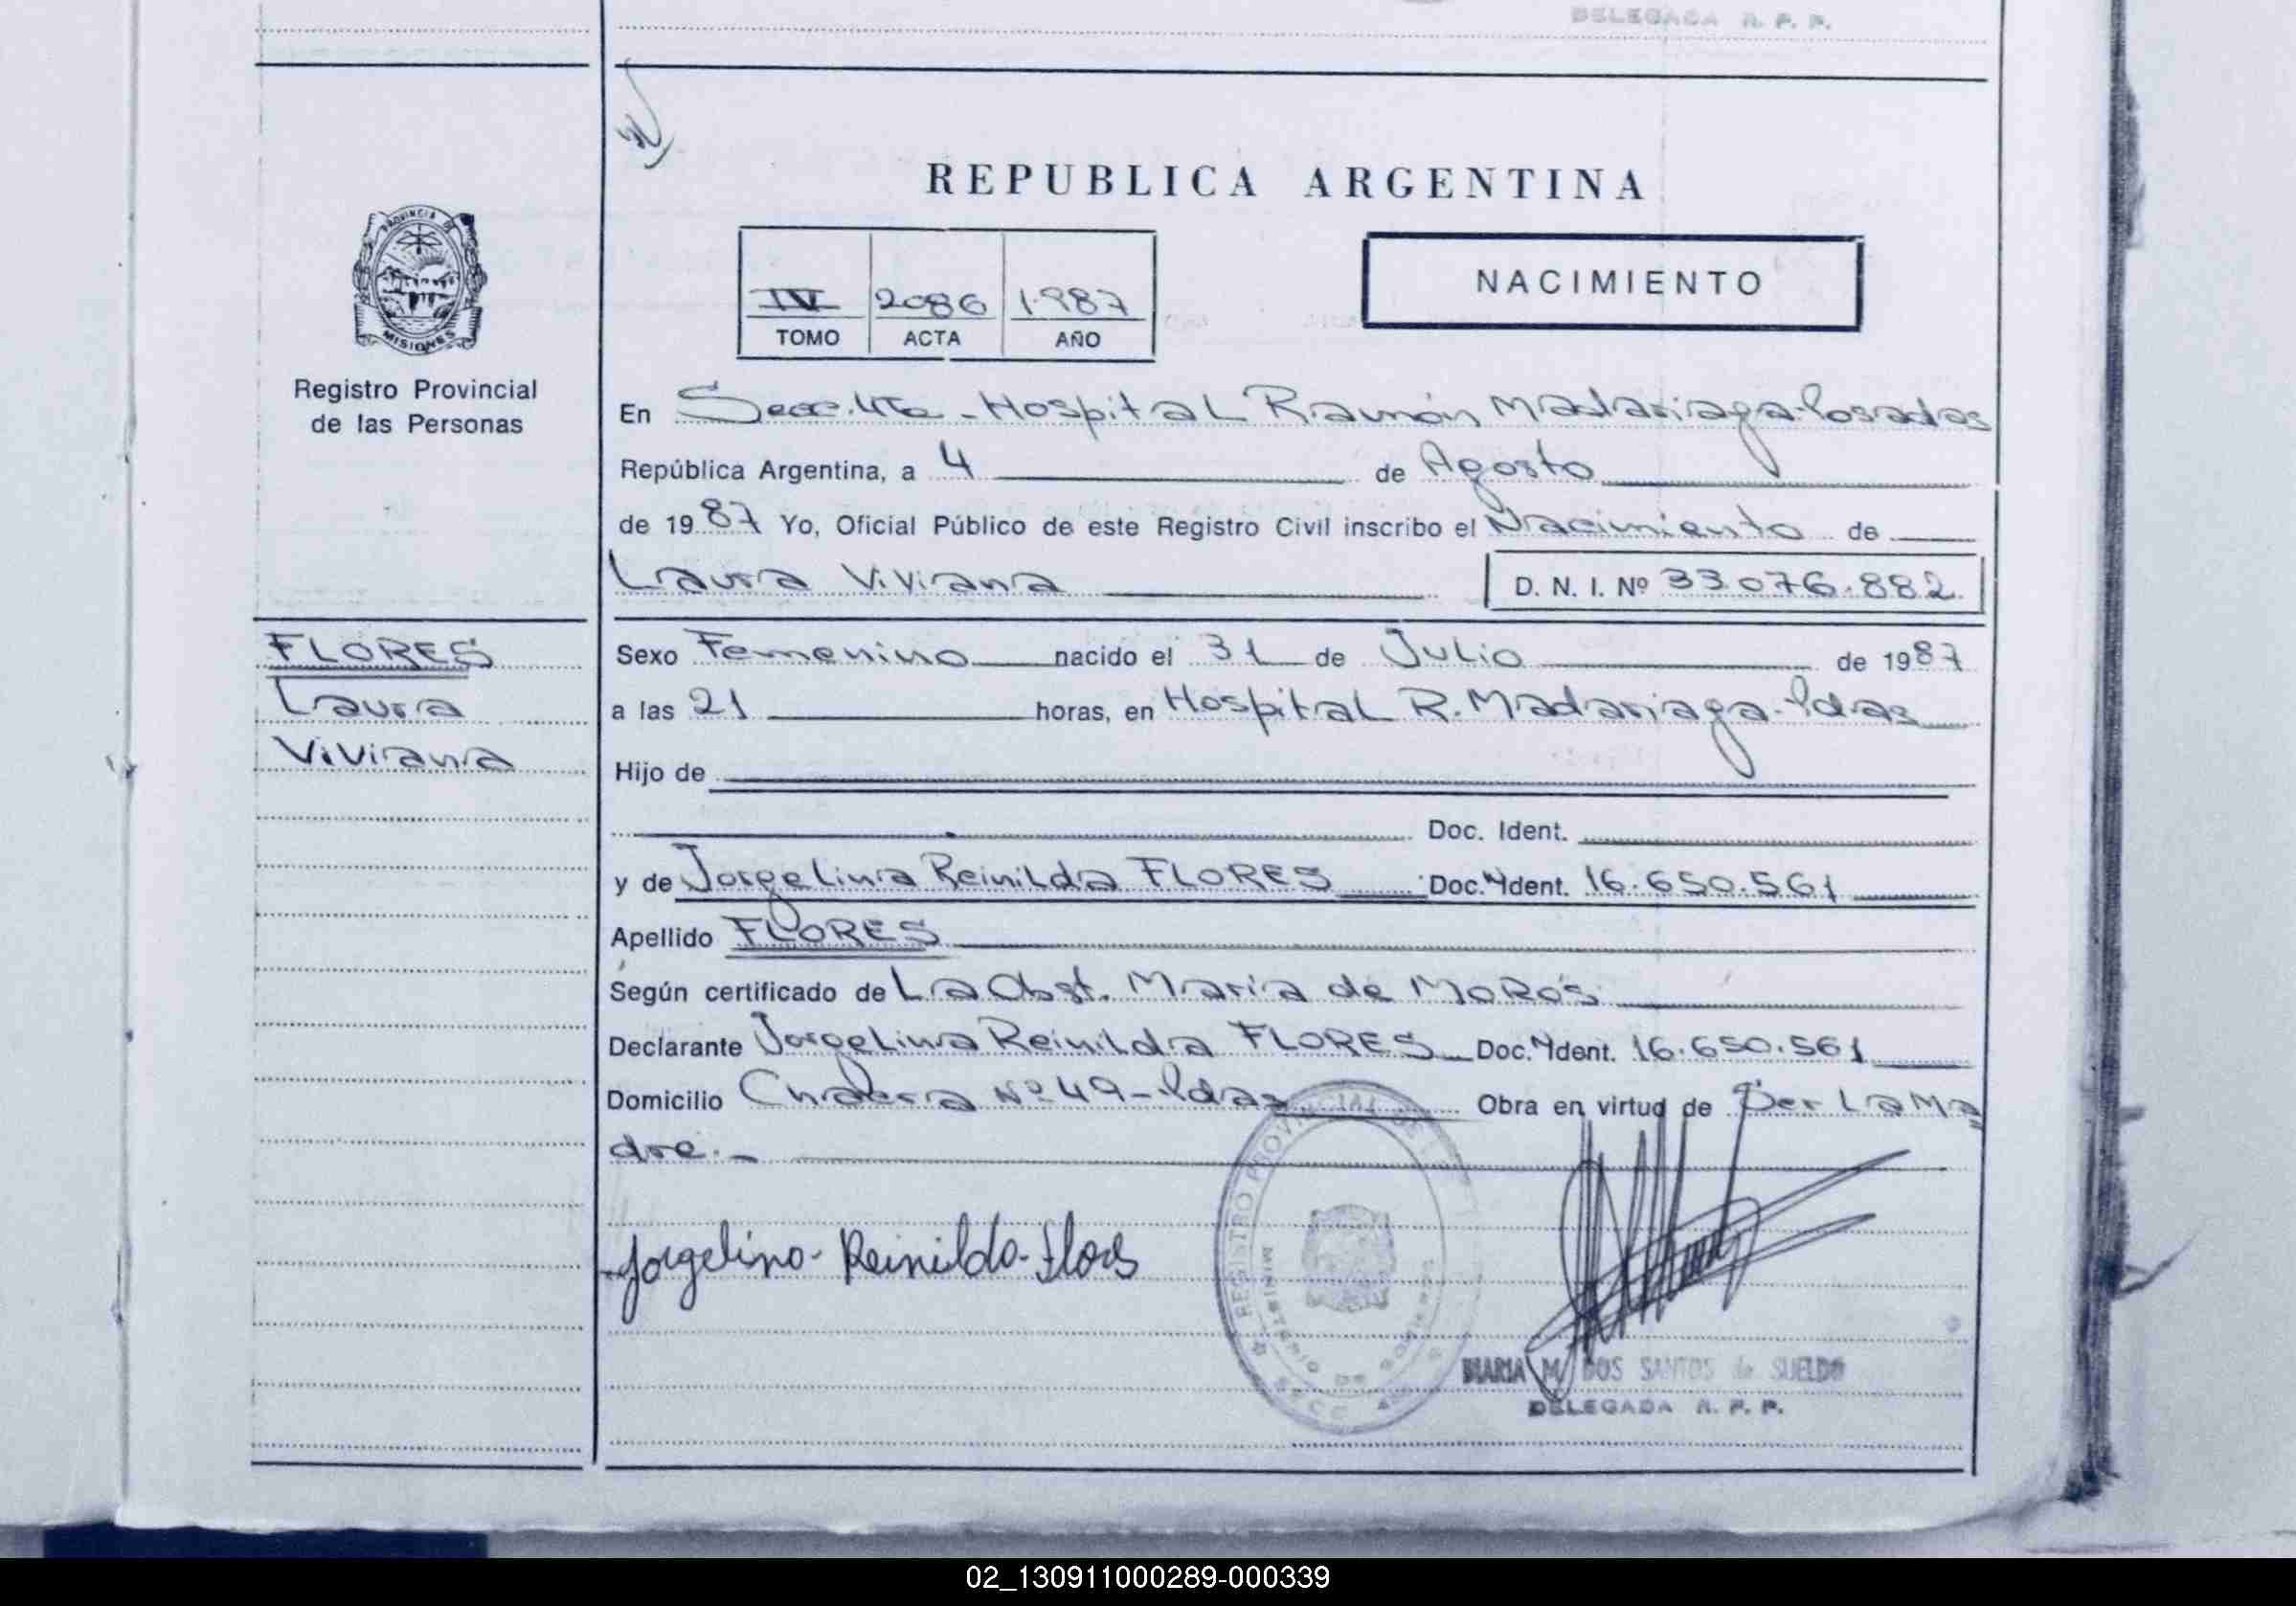 DELEGADA R. P. P.
REPUBLICA ARGENTINA
PROVINCIA DE
MISIONES
Registro Provincial
de las Personas
NACIMIENTO
IV 2086 1987
TOMO ACTA AÑO
En Secc. 4ta - Hospital Ramón Madariaga - Posadas
República Argentina, a 4 de Agosto
de 1987 Yo, Oficial Público de este Registro Civil inscribo el Nacimiento de
Laura Viviana D. N. I. Nº 33.076.882
FLORES
Laura
Viviana
Sexo Femenino nacido el 31 de Julio de 1987
a las 21 horas, en Hospital R. Madariaga - Pdas
Hijo de
Doc. Ident.
y de Jorgelina Reinilda FLORES Doc. Ident. 16.650.561
Apellido FLORES
Según certificado de La Obst. María de MoRos
Declarante Jorgelina Reinilda FLORES Doc. Ident. 16.650.561
Domicilio Chacra Nº 49 - Pdas Obra en virtud de Ser La Ma
dre. -
Jorgelina - Reinilda - Flores
REGISTRO PROVINCIAL DE
MINISTERIO DE GOBIERNO
MARIA M. DOS SANTOS de SUELDO
DELEGADA R. P. P.
02_130911000289-000339